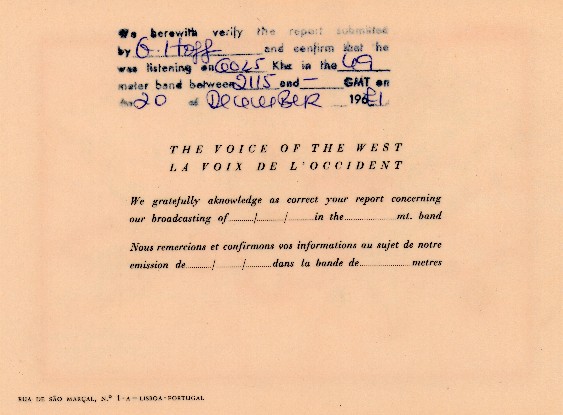 We herewith verify the report submitted
by G. Hoff and confirm that he
was listening on 6025 Khz in the 49
meter band between 2115 and — GMT on
the 20 of December 1981
THE VOICE OF THE WEST
LA VOIX DE L'OCCIDENT
We gratefully aknowledge as correct your report concerning
our broadcasting of ........./........./......... in the.................... mt. band
Nous remercions et confirmons vos informations au sujet de notre
emission de........./........./.........dans la bande de.................... metres
RUA DE SÃO MARÇAL, N.º 1-A - LISBOA-PORTUGAL